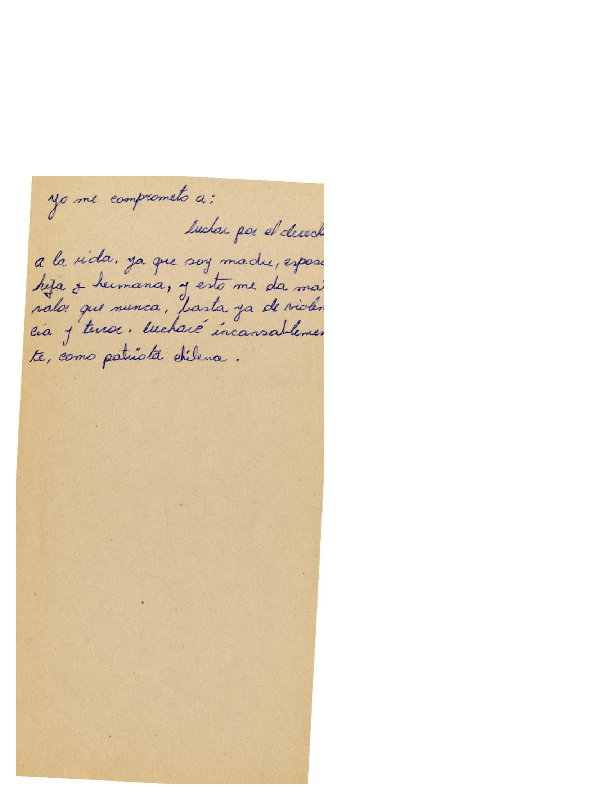 yo me comprometo a:
luchar por el derech
a la vida. ya que soy madre, espos
hija y hermana, y esto me da ma
valor que nunca, basta ya de violen
cia y terror. lucharé incansablemen
te, como patriota chilena.